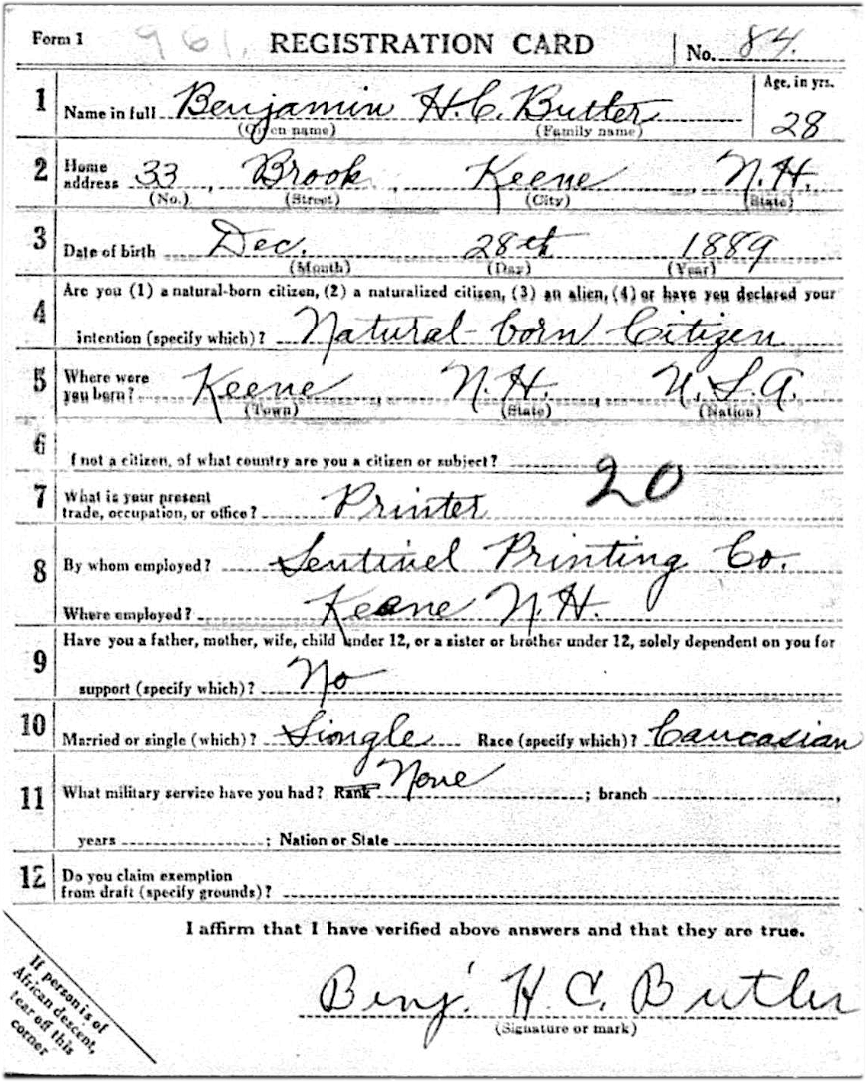 Form 1 961. REGISTRATION CARD No. 84.
1 Name in full Benjamin H.C. Butler Age, in yrs. 28
(Given name) (Family name)
2 Home address 33, Brook, Keene, N.H.
(No.) (Street) (City) (State)
3 Date of birth Dec. 28th 1889
(Month) (Day) (Year)
4 Are you (1) a natural-born citizen, (2) a naturalized citizen, (3) an alien, (4) or have you declared your
intention (specify which)? Natural-born Citizen
5 Where were you born? Keene, N.H., U.S.A.
(Town) (State) (Nation)
6 If not a citizen, of what country are you a citizen or subject?
20
7 What is your present
trade, occupation, or office? Printer
8 By whom employed? Sentinel Printing Co.
Where employed? Keene N.H.
9 Have you a father, mother, wife, child under 12, or a sister or brother under 12, solely dependent on you for
support (specify which)? No
10 Married or single (which)? Single Race (specify which)? Caucasian
11 What military service have you had? Rank None; branch,
years; Nation or State
12 Do you claim exemption
from draft (specify grounds)?
I affirm that I have verified above answers and that they are true.
Benj. H. C. Butler
(Signature or mark)
If person is of
African descent,
tear off this
corner